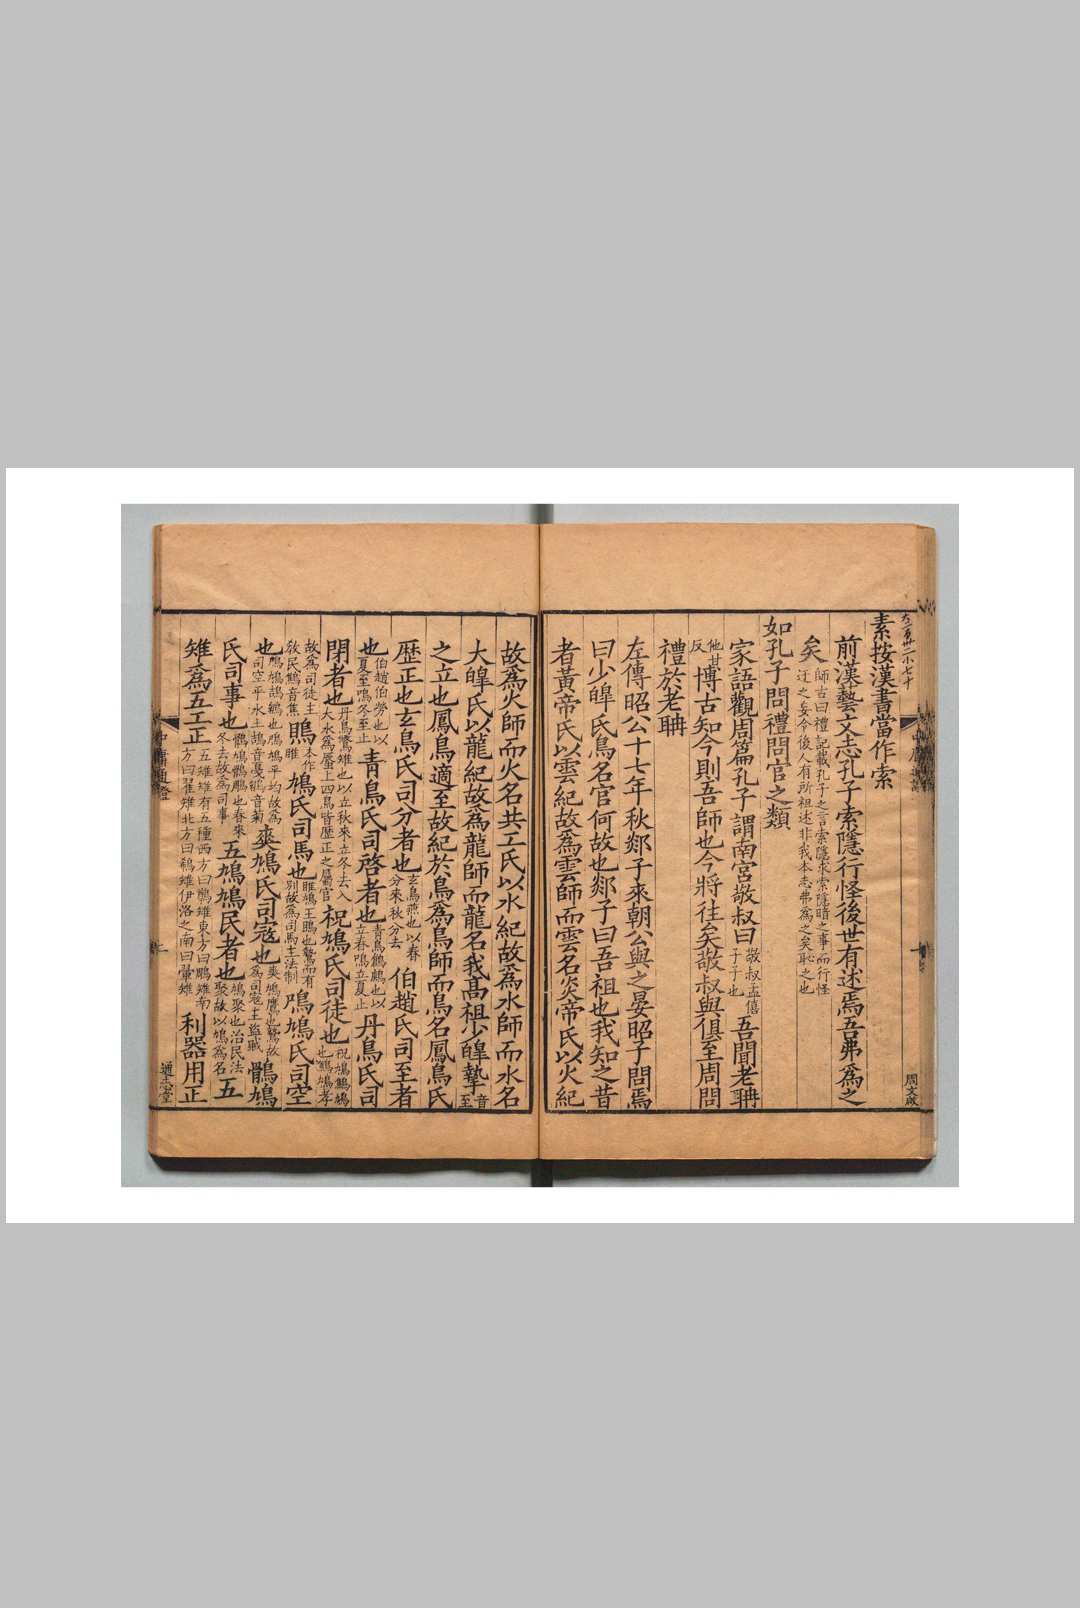 素按漢書當作索
前漢藝文志孔子索隱行怪後世有述焉吾弗爲之
矣師古曰禮記載孔子之言索隱求索隱暗之事而行怪迂之妄令後人有所祖述非我本志弗爲之矣恥之也
如孔子問禮問官之類
家語觀周篇孔子謂南宮敬叔曰敬叔孟僖子子也吾聞老聃
他甘反博古知今則吾師也今將往矣敬叔與俱至周問
禮於老聃
左傳昭公十七年秋郯子來朝公與之宴昭子問焉
曰少皥氏鳥名官何故也郯子曰吾祖也我知之昔
者黃帝氏以雲紀故爲雲師而雲名炎帝氏以火紀
故爲火師而火名共工氏以水紀故爲水師而水名
大皥氏以龍紀故爲龍師而龍名我高祖少皥摯音至
之立也鳳鳥適至故紀於鳥爲鳥師而鳥名鳳鳥氏
歷正也玄鳥氏司分者也玄鳥燕也以春分來秋分去伯趙氏司至者
也伯趙伯勞也以夏至鳴冬至止青鳥氏司啓者也青鳥鶬鴳也以立春鳴立夏止丹鳥氏司
閉者也丹鳥鷩雉也以立秋來立冬去入大水爲蜃上四鳥皆歷正之屬官祝鳩氏司徒也祝鳩鷦鳩也鷦鳩孝
故爲司徒主敎民鷦音焦鴡本作雎鳩氏司馬也雎鳩王鴡也鷙而有別故爲司馬主法制鳲鳩氏司空
也鳲鳩鴶鵴也鳲鳩平均故爲司空平水土鴶音戞鵴音菊爽鳩氏司寇也爽鳩鷹也鷙故爲司寇主盜賊鶻鳩
氏司事也鶻鳩鶻鵰也春來冬去故爲司事五鳩鳩民者也鳩聚也治民法聚故以鳩爲名五
雉爲五工正五雉雉有五種西方曰鷷雉東方曰鶅雉南方曰翟雉北方曰鵗雉伊洛之南曰翬雉利器用正
周文成
中庸通證
通志堂